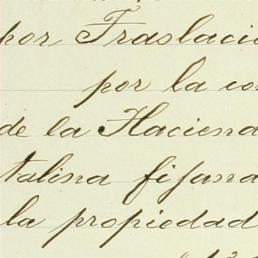 por Traslació
por la co
de la Hacienda
talina fijand
la propiedad